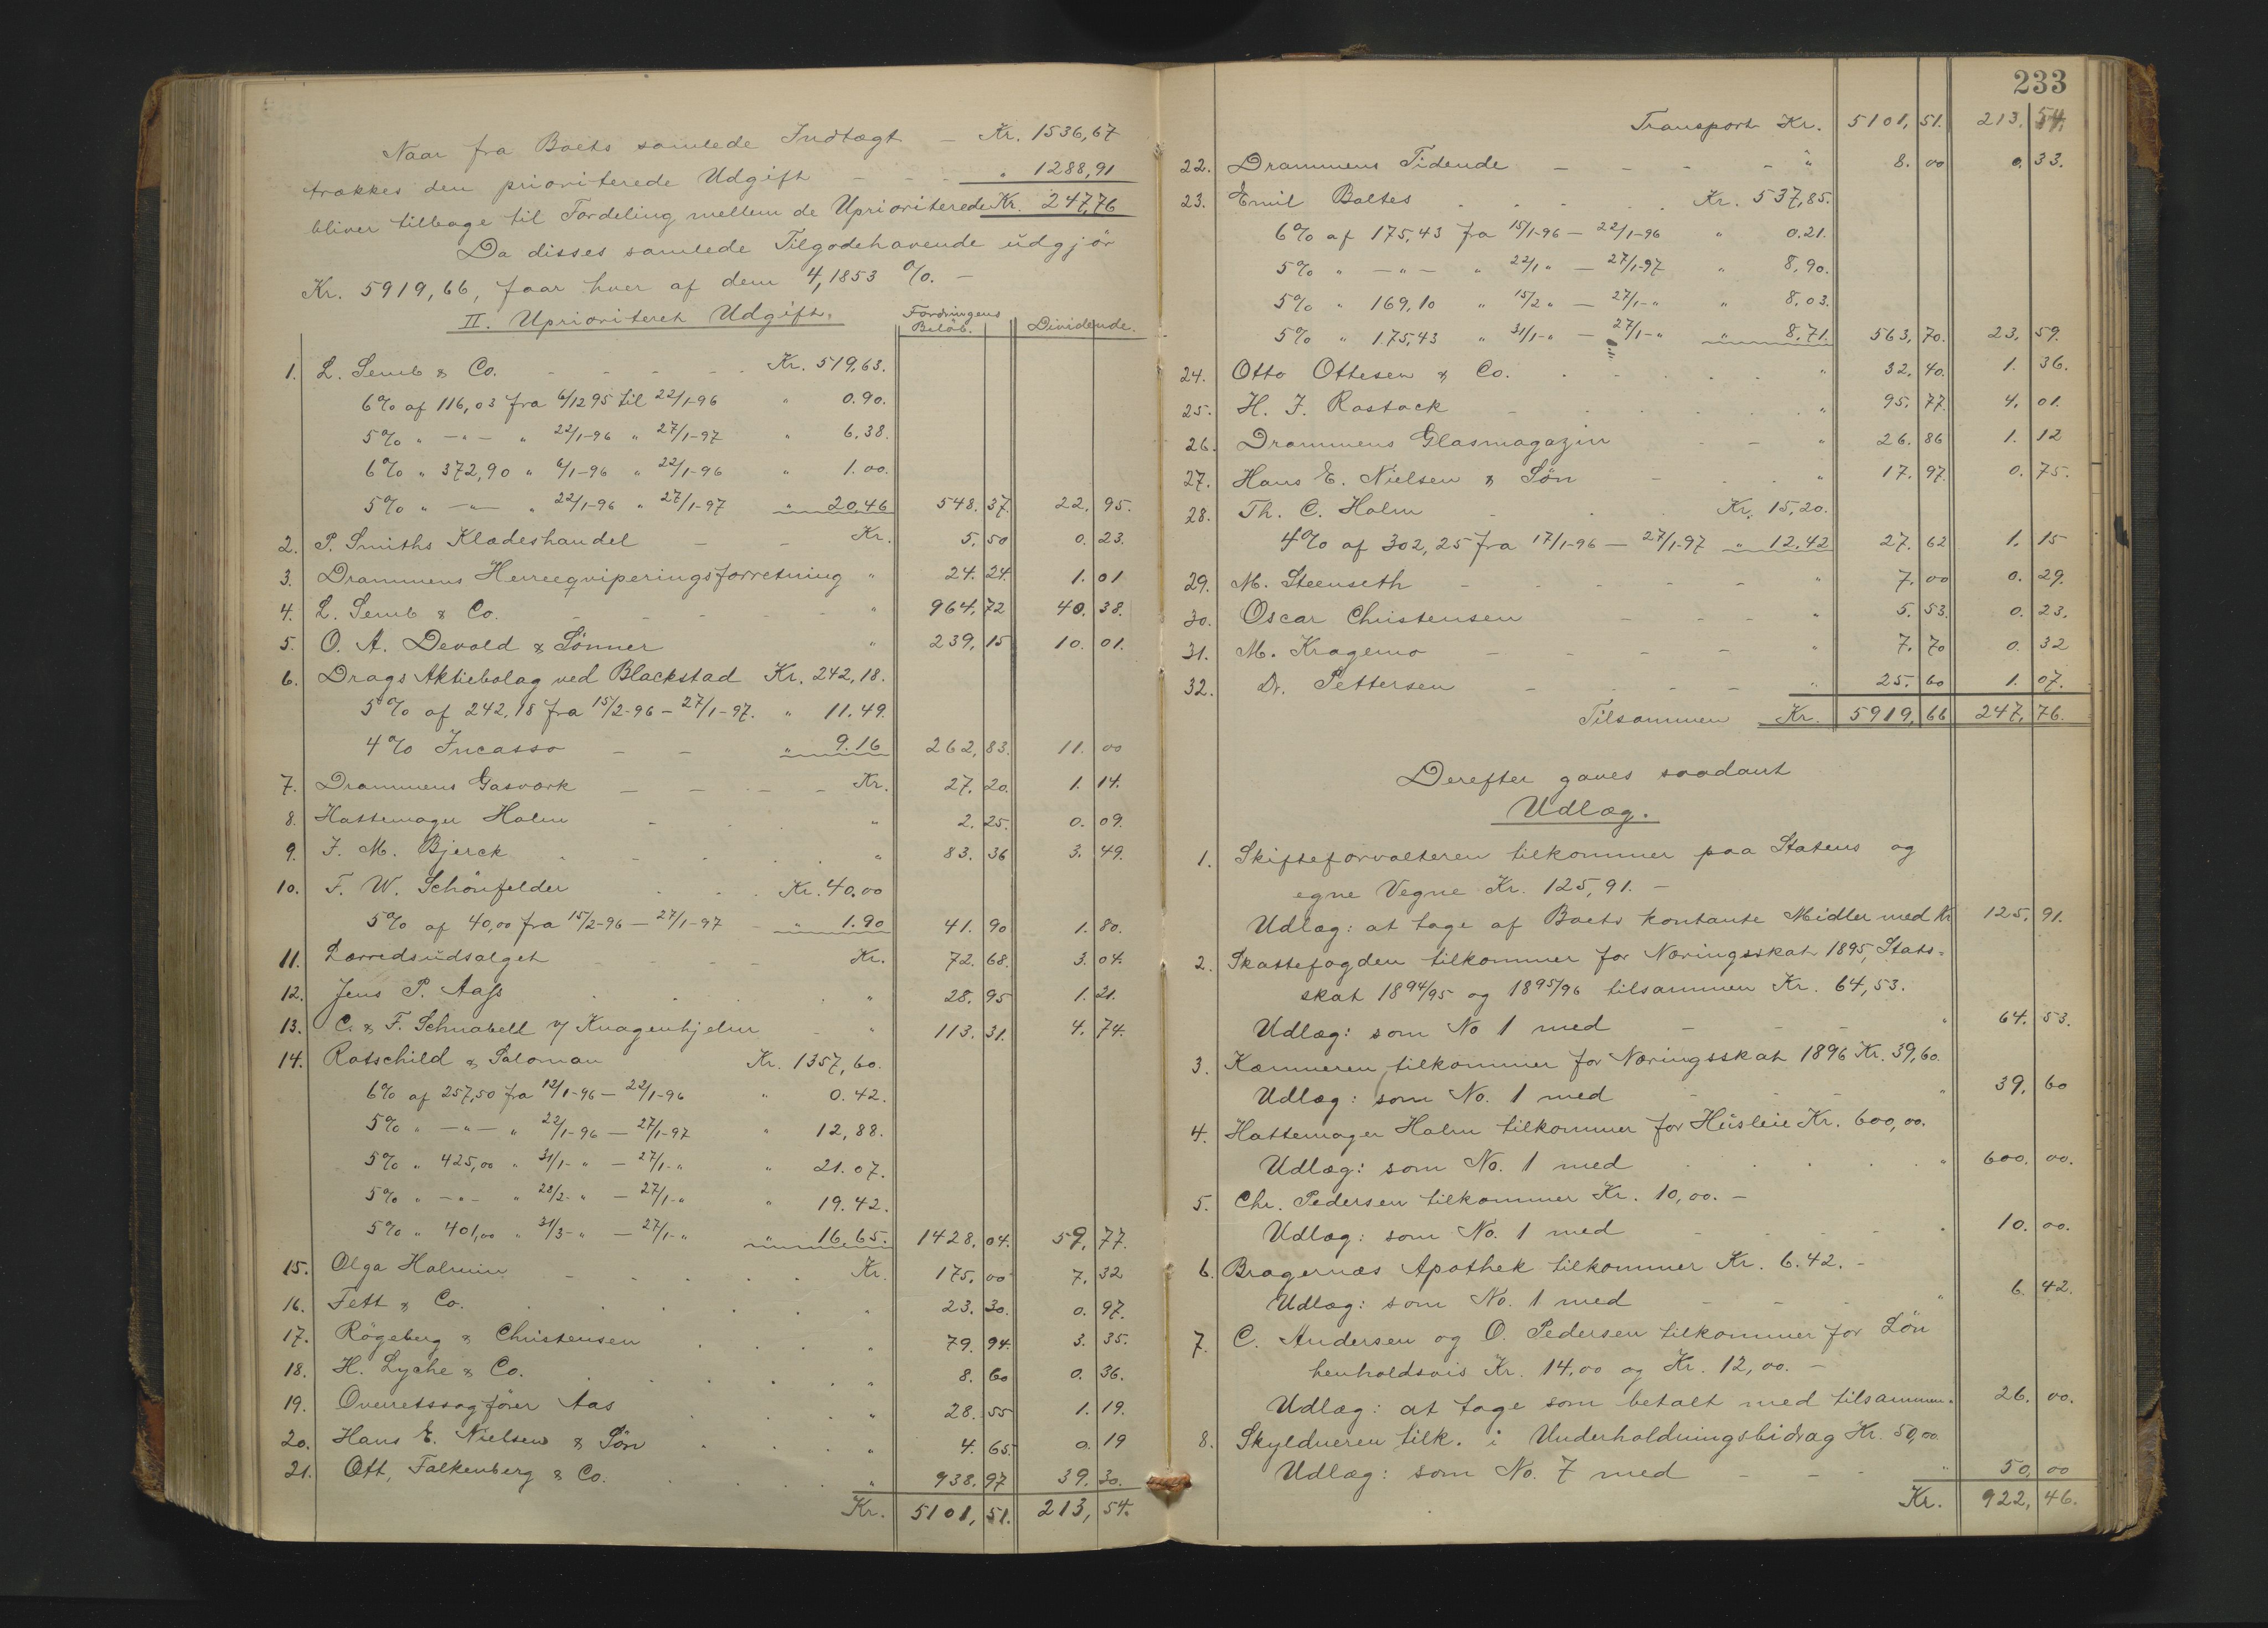 Naar fra Boets samlede Indtægt — Kr. 1536,67
trækkes den prioriterede Udgift — - - „ 1288,91
bliver tilbage til Fordeling mellem de Uprioriterede Kr. 247,76
Da disses samlede Tilgodehavende udgjør
Kr. 5919,66, faar hver af dem 4,1853 %. —
II. Uprioriteret Udgift. Fordringens Beløb. Dividende.
1. L. Semb & Co. - - - - Kr. 519,63.
6% af 116,03 fra 6/12 95 til 22/1-96 „ 0.90.
5% „ -„- „ 22/1-96 „ 27/1-97 „ 6,38.
6% „ 372,90 „ 6/1-96 „ 22/1-96 „ 1.00.
5% „ -„- „ 22/1-96 „ 27/1-97 „ 20,46 548. 37. 22. 95.
2. P. Smiths Klædeshandel — - Kr. 5. 50 0. 23.
3. Drammens Herreeqviperingsforretning „ 24. 24. 1. 01
4. L. Semb & Co. - - - - „ 964. 72 40. 38.
5. O. A. Devold & Sønner „ 239. 15 10. 01.
6. Drags Aktiebolag ved Blackstad Kr. 242,18.
5% af 242,18 fra 15/2-96 - 27/1-97. „ 11.49.
4% Incasso — - „ 9.16 262, 83. 11. 00
7. Drammens Gasværk — - - - Kr. 27. 20. 1. 14.
8. Hattemager Holm - . . „ 2. 25. 0. 09.
9. F. M. Bjerck . - . . . „ 83. 36 3. 49.
10. F. W. Schönfelder . . . Kr. 40,00
5% af 40,00 fra 15/2-96 — 27/1-97 - „ 1.90 41. 90 1. 80.
11. Lærredsudsalget - - - - Kr. 72. 68. 3. 04.
12. Jens P. Aass . . . . „ 28. 95 1. 21.
13. C. & F. Schnabell v/ Knagenhjelm - „ 113. 31. 4. 74.
14. Rotschild & Saloman Kr. 1357,60.
6% af 257,50 fra 12/1-96 — 22/1-96 „ 0.42.
5% „ -„- „ 22/1-96 — 27/1-97 „ 12,88.
5% „ 425,00 „ 31/1-„ — 27/1-„ „ 21.07.
5% „ -„- „ 28/2-„ — 27/1-„ „ 19.42.
5% „ 401,00 „ 31/3-„ — 27/1-„ „ 16,65. 1428. 04. 59. 77.
15. Olga Halmin - . . . Kr. 175. 00 7. 32
16. Fett & Co. . . . . . „ 23. 30. 0. 97.
17. Røgeberg & Christensen . . . „ 79. 94. 3. 35.
18. H. Lyche & Co. . . . . „ 8. 60 0. 36.
19. Overretssagfører Aas . . . „ 28. 55 1. 19.
20. Hans E. Nielsen & Søn . . . „ 4. 65. 0. 19
21. Ott, Falkenberg & Co. . . . „ 938. 97 39. 30.
Kr. 5101, 51. 213, 54.
233
Transport Kr. 5101, 51. 213, 54.
22. Drammens Tidende — - - - „ 8. 00 0. 33.
23. Emil Boltes . . . . . Kr. 537,85.
6% af 175,43 fra 15/1-96 — 22/1-96 „ 0.21.
5% „ -„- „ 22/1 „ — 27/1-97 „ 8,90.
5% „ 169,10 „ 15/2 „ — 27/1-„ „ 8,03.
5% „ 175,43 „ 31/1-„ — 27/1-„ „ 8,71. 563, 70. 23, 59.
24. Otto Ottesen & Co. . . . . . „ 32. 40. 1. 36.
25. H. F. Rostock - . . . . „ 95. 77. 4. 01.
26. Drammens Glasmagazin - - „ 26. 86 1. 12
27. Hans E. Nielsen & Søn - . . „ 17. 97. 0. 75.
28. Th. C. Holm - . . Kr. 15,20.
4% af 302,25 fra 17/1-96 — 27/1-97 „ 12,42 27. 62 1. 15
29. M. Steenseth - - - - - „ 7. 00 0. 29.
30. Oscar Christensen - - - „ 5. 53. 0. 23.
31. M. Kragemo - - - - „ 7. 70 0. 32
32. Dr. Pettersen - - - - „ 25. 60 1. 07.
Tilsammen Kr. 5919, 66 247, 76.
Derefter gaves saadant
Udlæg.
1. Skifteforvalteren tilkommer paa Statens og
egne Vegne Kr. 125,91. —
Udlæg: at tage af Boets kontante Midler med Kr 125. 91.
2. Skattefogden tilkommer for Næringsskat 1895, Stats-
skat 1894/95 og 1895/96 tilsammen Kr. 64,53.
Udlæg: som No 1 med - - - „ 64. 53.
3. Kæmneren tilkommer for Næringsskat 1896 Kr. 39,60.
Udlæg: som No. 1 med - - - „ 39. 60
4. Hattemager Holm tilkommer for Husleie Kr. 600,00.
Udlæg: som No. 1 med . . . . . „ 600. 00.
5. Chr. Pedersen tilkommer Kr. 10,00. —
Udlæg: som No. 1 med - - - - „ 10. 00.
6. Bragernæs Apothek tilkommer Kr. 6.42. -
Udlæg: som No. 1 med - - - „ 6. 42.
7. C. Andersen og O. Pedersen tilkommer for Løn
henholdsvis Kr. 14,00 og Kr. 12,00. —
Udlæg: at tage som betalt med tilsammen „ 26. 00.
8. Skyldneren tilk. i Underholdningsbidrag Kr. 50,00
Udlæg: som No. 7 med - - - „ 50, 00
Kr. 922, 46.